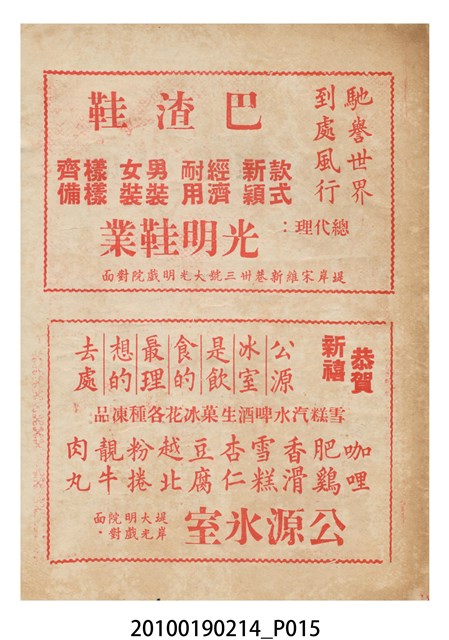 馳譽世界
到處風行
巴渣鞋
款式新穎
經濟耐用
男裝女裝
樣樣齊備
總代理：
光明鞋業
堤岸宋維新巷卅三號大光明戲院對面
恭賀新禧
公源冰室是飲食的最理想的去處
雪糕汽水啤酒生菓冰花各種凍品
咖哩肥雞香滑雪糕杏仁豆腐越北粉捲靚牛肉丸
公源氷室
堤岸大光明戲院對面．
20100190214_P015